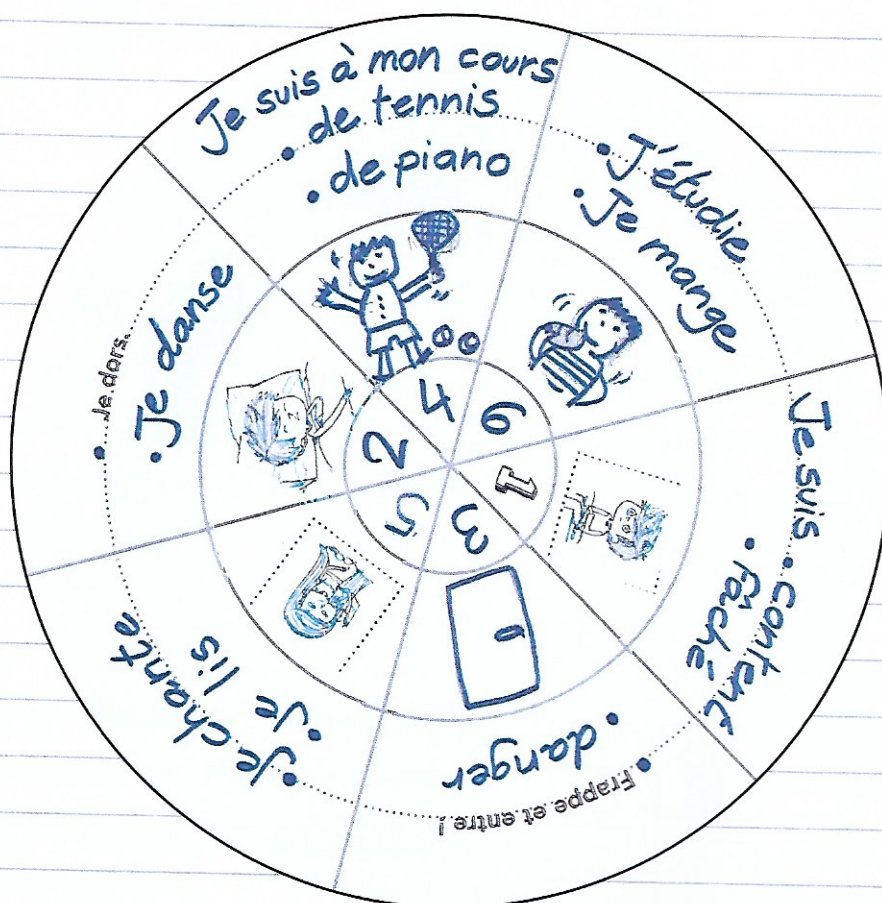 Je suis à mon cours
• de tennis
• de piano
4
• J'étudie
• Je mange
6
Je suis • content
• fâché
1
• danger
• Frappe et entre !
3
• Je chante
• Je lis
5
• Je dors.
• Je danse
2